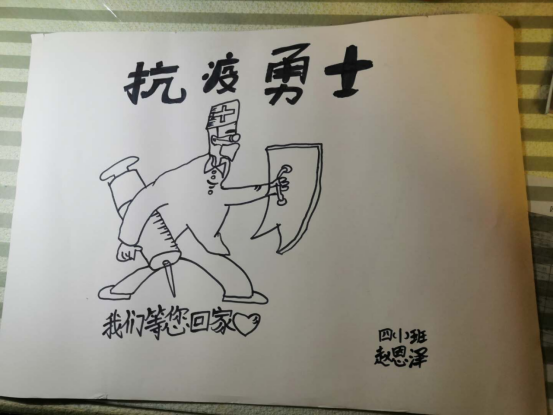 抗疫勇士
我们等您回家
四(1)班
赵恩泽